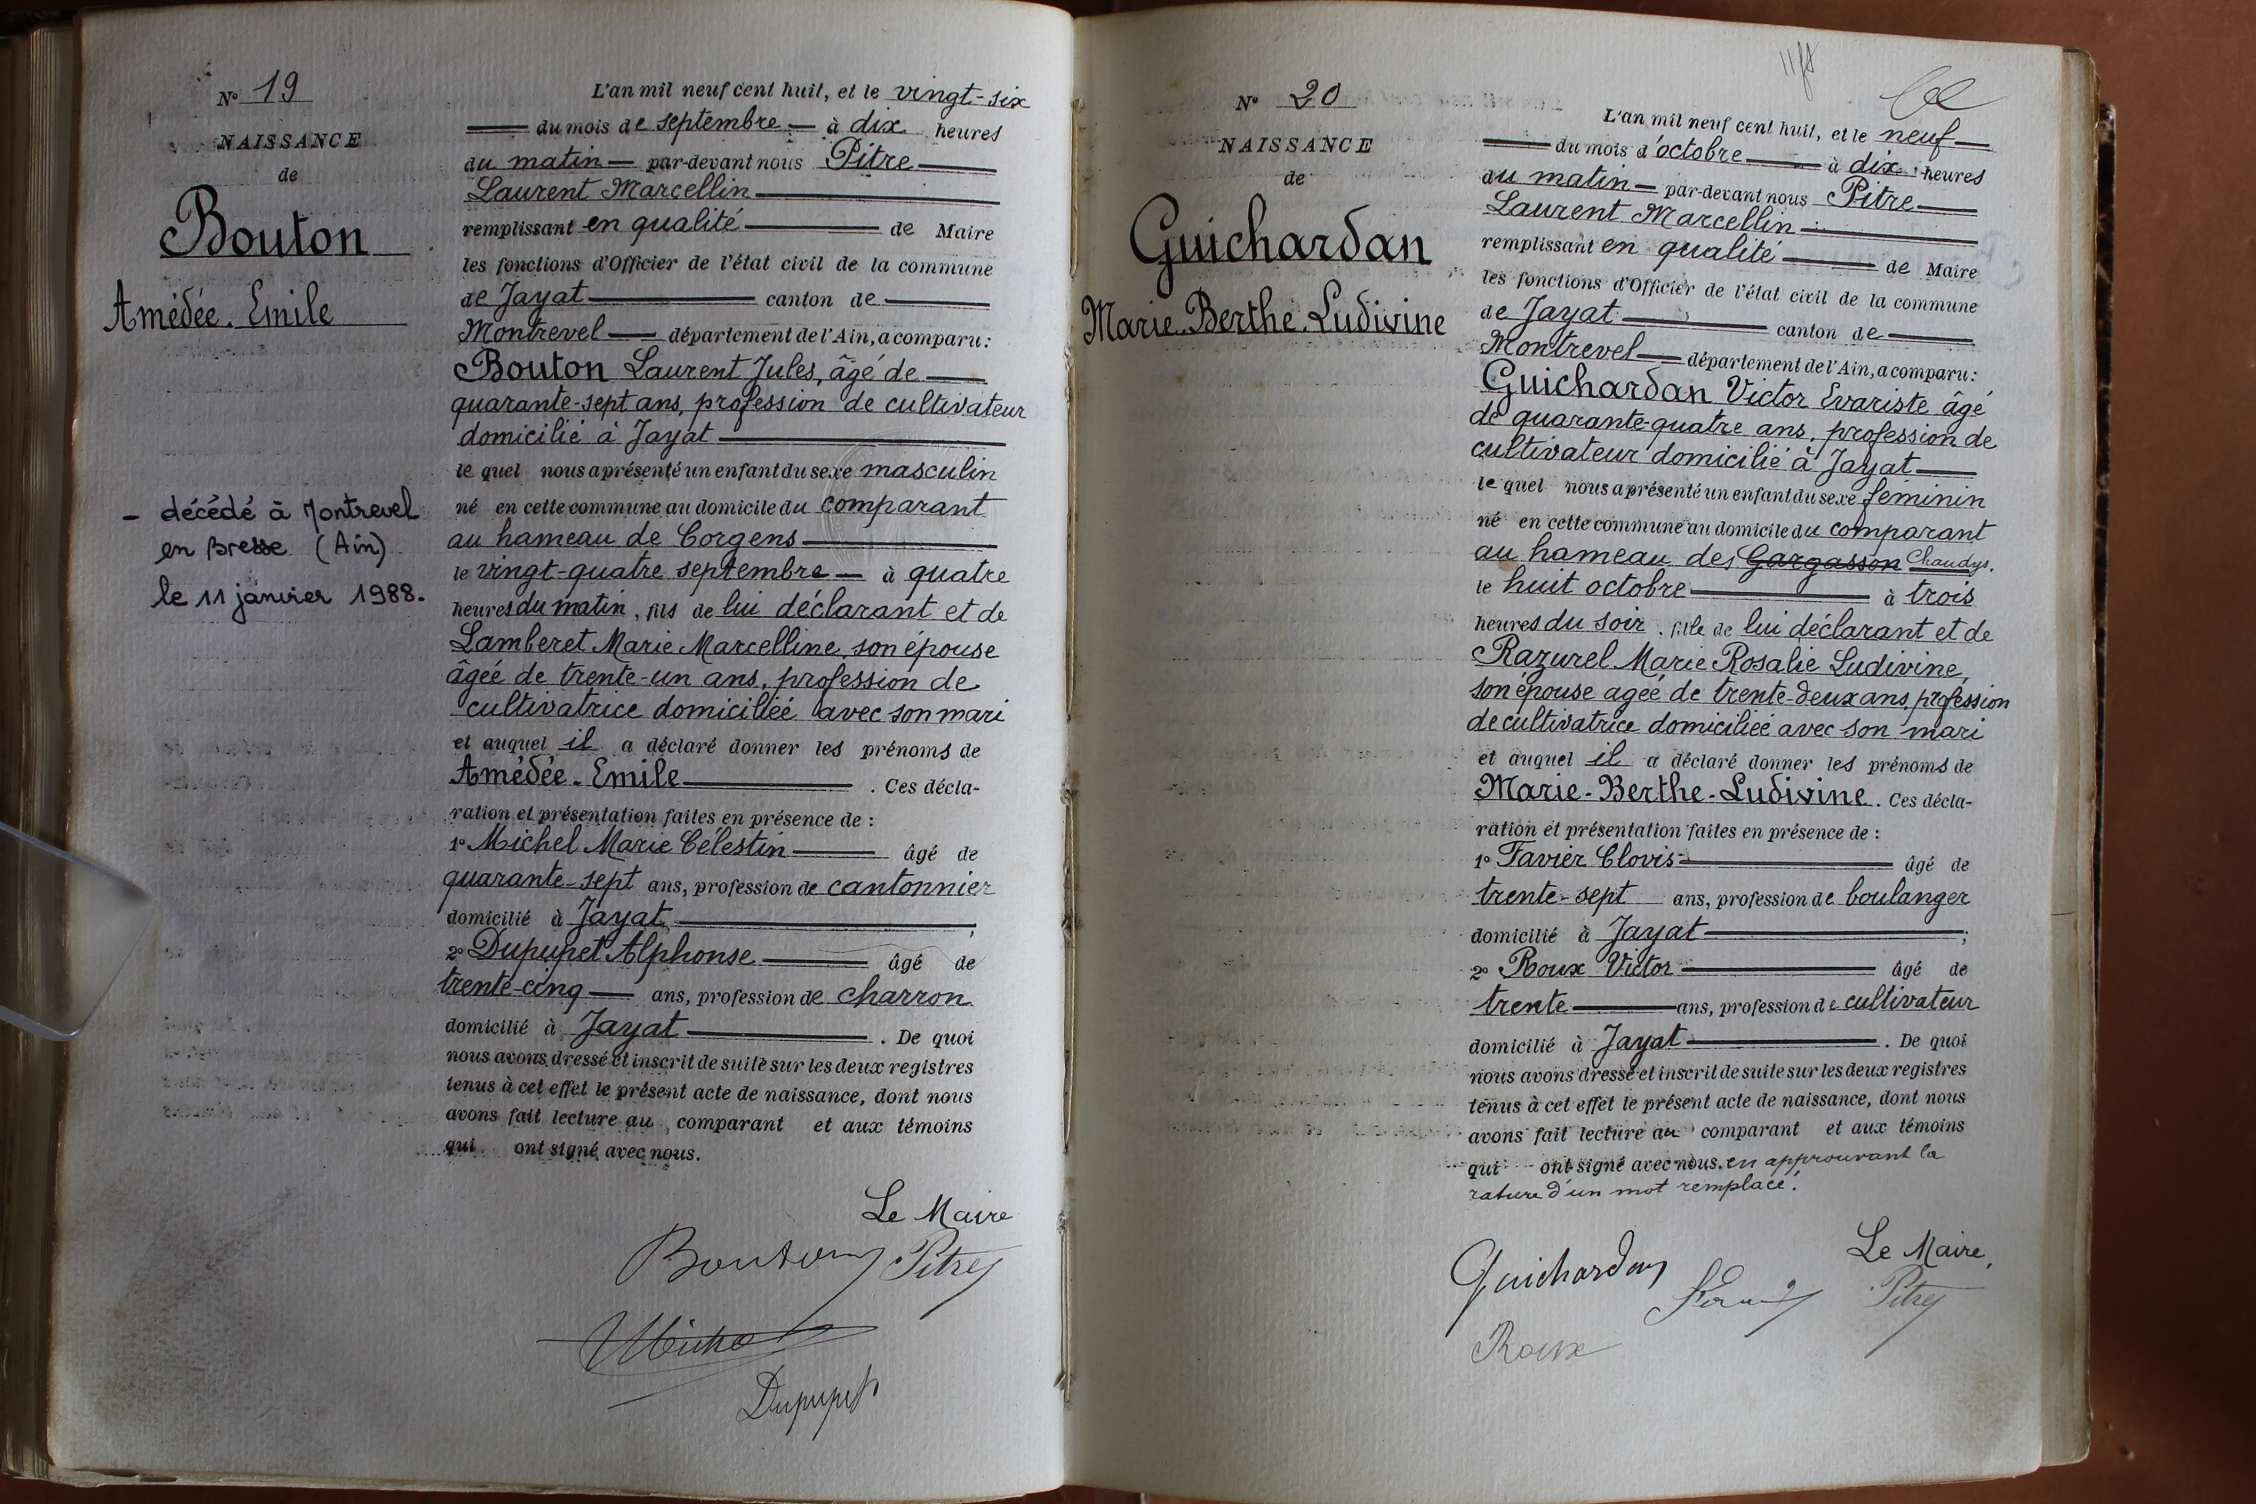 N° 19
NAISSANCE
de
Bouton
Amédée. Emile
- décédé à Montrevel
en Bresse (Ain)
le 11 janvier 1988.
L'an mil neuf cent huit, et le vingt-six
du mois de septembre à dix heures
du matin par-devant nous Pitre
Laurent Marcellin
remplissant en qualité de Maire
les fonctions d'Officier de l'état civil de la commune
de Jayat canton de
Montrevel département de l'Ain, a comparu :
Bouton Laurent Jules, âgé de
quarante-sept ans, profession de cultivateur
domicilié à Jayat
le quel nous a présenté un enfant du sexe masculin
né en cette commune au domicile du comparant
au hameau de Corgens
le vingt-quatre septembre à quatre
heures du matin, fils de lui déclarant et de
Lamberet Marie Marcelline, son épouse
âgée de trente-un ans, profession de
cultivatrice domiciliée avec son mari
et auquel il a déclaré donner les prénoms de
Amédée-Emile. Ces décla-
ration et présentation faites en présence de :
1° Michel Marie Célestin âgé de
quarante-sept ans, profession de cantonnier
domicilié à Jayat;
2° Dupupet Alphonse âgé de
trente-cinq ans, profession de charron
domicilié à Jayat. De quoi
nous avons dressé et inscrit de suite sur les deux registres
tenus à cet effet le présent acte de naissance, dont nous
avons fait lecture au comparant et aux témoins
qui ont signé avec nous.
Le Maire
Bouton Pitre
Michel
Dupupet
N° 20
NAISSANCE
de
Guichardan
Marie. Berthe. Ludivine
L'an mil neuf cent huit, et le neuf
du mois d'octobre à dix heures
du matin par-devant nous Pitre
Laurent Marcellin
remplissant en qualité de Maire
les fonctions d'Officier de l'état civil de la commune
de Jayat canton de
Montrevel département de l'Ain, a comparu :
Guichardan Victor Evariste âgé
de quarante-quatre ans, profession de
cultivateur domicilié à Jayat
le quel nous a présenté un enfant du sexe féminin
né en cette commune au domicile du comparant
au hameau des Gargasson Chaudys.
le huit octobre à trois
heures du soir, fille de lui déclarant et de
Razurel Marie Rosalie Ludivine,
son épouse agée de trente-deux ans, profession
de cultivatrice domiciliée avec son mari
et auquel il a déclaré donner les prénoms de
Marie-Berthe-Ludivine. Ces décla-
ration et présentation faites en présence de :
1° Favier Clovis âgé de
trente-sept ans, profession de boulanger
domicilié à Jayat;
2° Roux Victor âgé de
trente ans, profession de cultivateur
domicilié à Jayat. De quoi
nous avons dressé et inscrit de suite sur les deux registres
tenus à cet effet le présent acte de naissance, dont nous
avons fait lecture au comparant et aux témoins
qui ont signé avec nous. en approuvant la
rature d'un mot remplacé.
Le Maire,
Guichardan Pitre
Roux